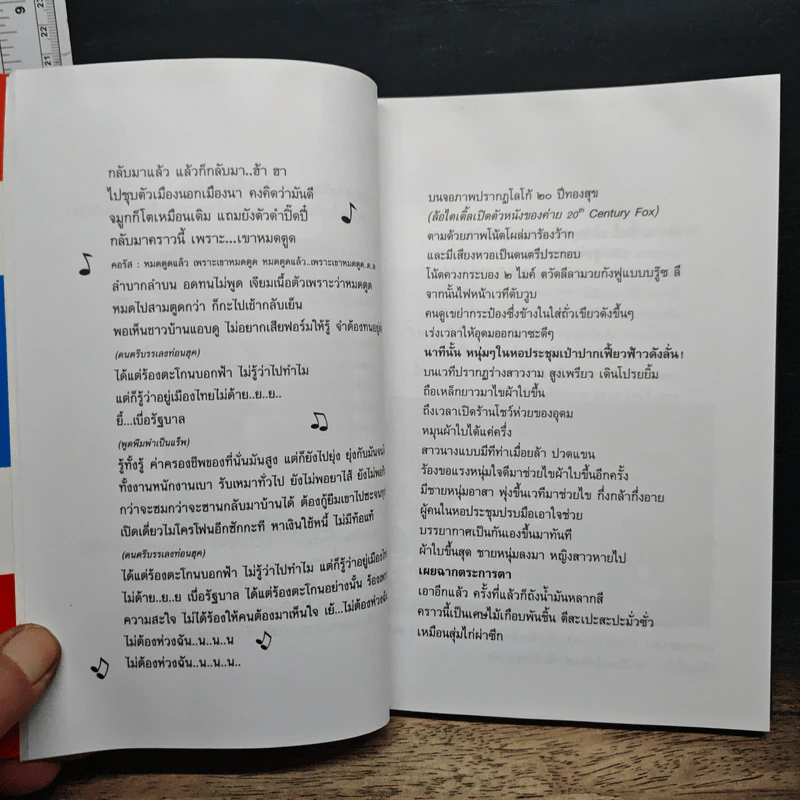 9
23
22
21
กลับมาแล้ว แล้วก็กลับมา..ฮ้า ฮา
ไปชุบตัวเมืองนอกเมืองนา คงคิดว่ามันดี
จมูกก็โตเหมือนเดิม แถมยังตัวดำปิ๊ดปี๋
กลับมาคราวนี้ เพราะ...เขาหมดตูด
คอรัส : หมดตูดแล้ว เพราะเขาหมดตูด หมดตูดแล้ว..เพราะเขาหมดตูด..ด..ด
ลำบากลำบน อดทนไม่พูด เจียมเนื้อตัวเพราะว่าหมดตูด
หมดไปสามตูดกว่า ก็กะไปเช้ากลับเย็น
พอเห็นชาวบ้านแอบดู ไม่อยากเสียฟอร์มให้รู้ จำต้องทนอยู่
(ดนตรีบรรเลงท่อนฮุค)
ได้แต่ร้องตะโกนบอกฟ้า ไม่รู้ว่าไปทำไม
แต่ก็รู้ว่าอยู่เมืองไทยไม่ด้าย..ย..ย..
ยี้...เบื่อรัฐบาล
(พูดพึมพำเป็นแร็พ)
รู้ทั้งรู้ ค่าครองชีพของที่นั่นมันสูง แต่ก็ยังไปยุ่ง ยุ่งกับมันจนได้
ทั้งงานหนักงานเบา รับเหมาทั่วไป ยังไม่พอยาไส้ ยังไม่พอ
กว่าจะซมกว่าจะซานกลับมาบ้านได้ ต้องกู้ยืมเขาไปซะจน
เปิดเดี่ยวไมโครโฟนอีกซักกะที หาเงินใช้หนี้ ไม่มีท้อแท้
(ดนตรีบรรเลงท่อนฮุค)
ได้แต่ร้องตะโกนบอกฟ้า ไม่รู้ว่าไปทำไม แต่ก็รู้ว่าอยู่เมือง
ไม่ด้าย..ย..ย เบื่อรัฐบาล ได้แต่ร้องตะโกนอย่างนั้น ร้อง
ความสะใจ ไม่ได้ร้องให้คนต้องมาเห็นใจ เย้...ไม่ต้องห่วงฉัน
ไม่ต้องห่วงฉัน..น..น..น
ไม่ต้องห่วงฉัน..น..น..น..
บนจอภาพปรากฏโลโก้ ๒๐ ปีทองสุข
(ล้อไตเติ้ลเปิดตัวหนังของค่าย 20th Century Fox)
ตามด้วยภาพโน้ตโผล่มาร้องว้าก
และมีเสียงหวอเป็นดนตรีประกอบ
โน้ตควงกระบอง ๒ ไมค์ ตวัดลีลามวยกังฟูแบบบรู๊ซ ลี
จากนั้นไฟหน้าเวทีดับวูบ
คนดูเขย่ากระป๋องซึ่งข้างในใส่ถั่วเขียวดังขึ้นๆ
เร่งเวลาให้อุดมออกมาซะดีๆ
นาทีนั้น หนุ่มๆในหอประชุมเป่าปากเฟี้ยวฟ้าวดังลั่น!
บนเวทีปรากฏร่างสาวงาม สูงเพรียว เดินโปรยยิ้ม
ถือเหล็กยาวมาไขผ้าใบขึ้น
ถึงเวลาเปิดร้านโชว์ห่วยของอุดม
หมุนผ้าใบได้แค่ครึ่ง
สาวนางแบบมีทีท่าเมื่อยล้า ปวดแขน
ร้องขอแรงหนุ่มใจดีมาช่วยไขผ้าใบขึ้นอีกครั้ง
มีชายหนุ่มอาสา พุ่งขึ้นเวทีมาช่วยไข กึ่งกล้ากึ่งอาย
ผู้คนในหอประชุมปรบมือเอาใจช่วย
บรรยากาศเป็นกันเองขึ้นมาทันที
ผ้าใบขึ้นสุด ชายหนุ่มลงมา หญิงสาวหายไป
เผยฉากตระการตา
เอาอีกแล้ว ครั้งที่แล้วก็ถังน้ำมันหลากสี
คราวนี้เป็นเศษไม้เกือบพันชิ้น ตีสะเปะสะปะมั่วซั่ว
เหมือนสุ่มไก่ผ่าซีก